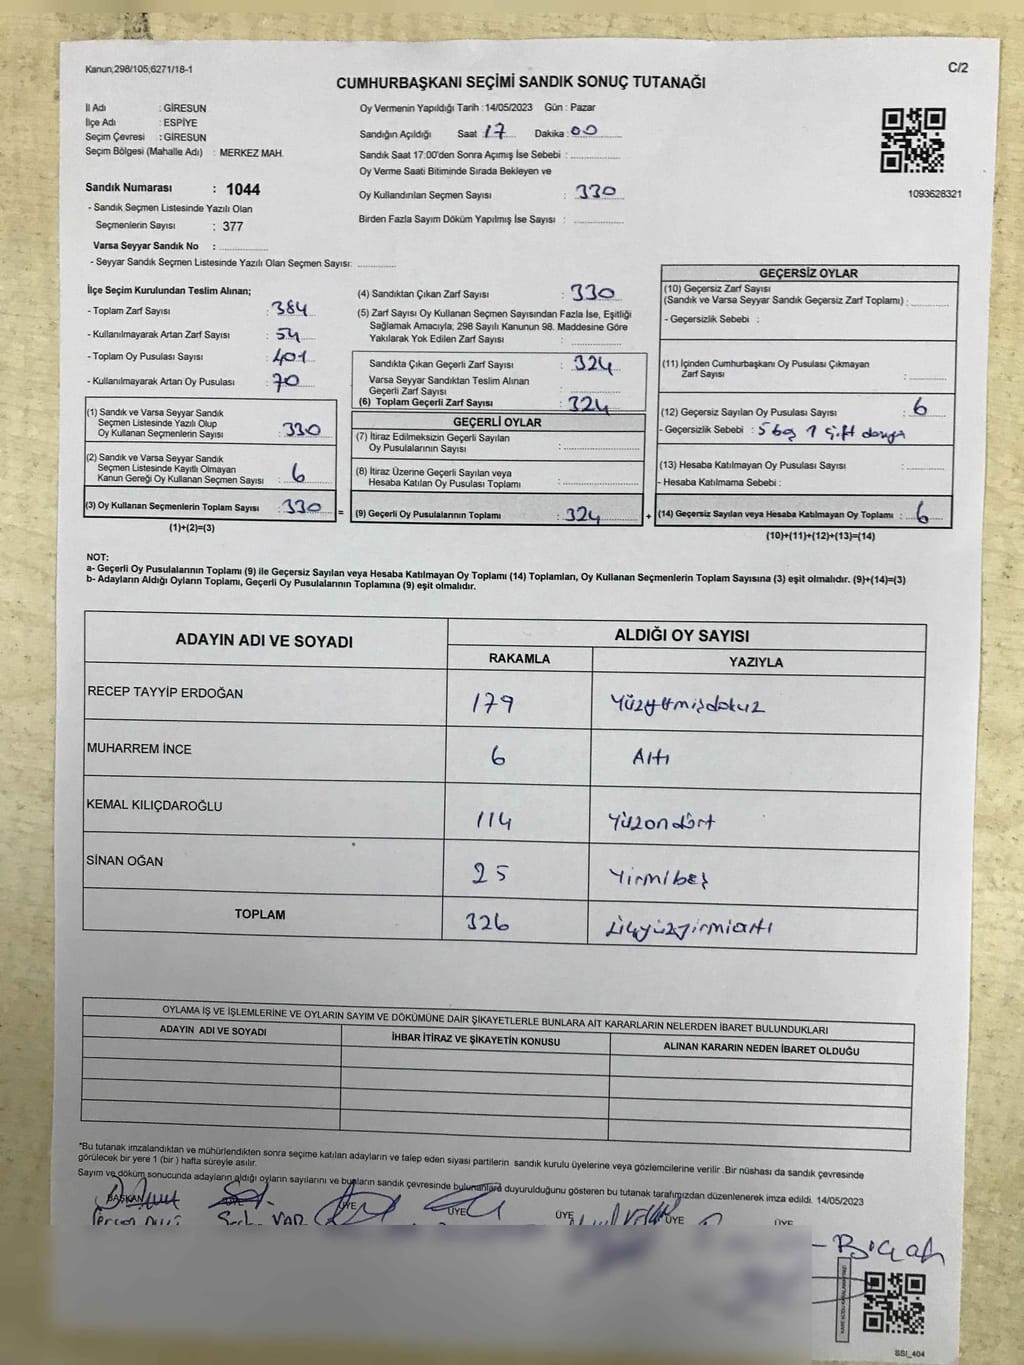 Kanun;298/105;6271/18-1
C/2
CUMHURBAŞKANI SEÇİMİ SANDIK SONUÇ TUTANAĞI
İl Adı : GİRESUN
İlçe Adı : ESPİYE
Seçim Çevresi : GİRESUN
Seçim Bölgesi (Mahalle Adı) : MERKEZ MAH.
Sandık Numarası : 1044
- Sandık Seçmen Listesinde Yazılı Olan
Seçmenlerin Sayısı : 377
Varsa Seyyar Sandık No :
- Seyyar Sandık Seçmen Listesinde Yazılı Olan Seçmen Sayısı:
Oy Vermenin Yapıldığı Tarih : 14/05/2023 Gün : Pazar
Sandığın Açıldığı Saat : 17 Dakika : 00
Sandık Saat 17:00'den Sonra Açımış İse Sebebi :
Oy Verme Saati Bitiminde Sırada Bekleyen ve
Oy Kullandırılan Seçmen Sayısı : 330
Birden Fazla Sayım Döküm Yapılmış İse Sayısı :
1093628321
İlçe Seçim Kurulundan Teslim Alınan;
- Toplam Zarf Sayısı : 384
- Kullanılmayarak Artan Zarf Sayısı : 54
- Toplam Oy Pusulası Sayısı : 401
- Kullanılmayarak Artan Oy Pusulası : 70
(1) Sandık ve Varsa Seyyar Sandık
Seçmen Listesinde Yazılı Olup
Oy Kullanan Seçmenlerin Sayısı : 330
(2) Sandık ve Varsa Seyyar Sandık
Seçmen Listesinde Kayıtlı Olmayan
Kanun Gereği Oy Kullanan Seçmen Sayısı : 6
(3) Oy Kullanan Seçmenlerin Toplam Sayısı : 330 =
(1)+(2)=(3)
(4) Sandıktan Çıkan Zarf Sayısı : 330
(5) Zarf Sayısı Oy Kullanan Seçmen Sayısından Fazla İse, Eşitliği
Sağlamak Amacıyla; 298 Sayılı Kanunun 98. Maddesine Göre
Yakılarak Yok Edilen Zarf Sayısı :
Sandıkta Çıkan Geçerli Zarf Sayısı : 324
Varsa Seyyar Sandıktan Teslim Alınan
Geçerli Zarf Sayısı :
(6) Toplam Geçerli Zarf Sayısı : 324
GEÇERLİ OYLAR
(7) İtiraz Edilmeksizin Geçerli Sayılan
Oy Pusulalarının Sayısı :
(8) İtiraz Üzerine Geçerli Sayılan veya
Hesaba Katılan Oy Pusulası Toplamı :
(9) Geçerli Oy Pusulalarının Toplamı : 324 +
GEÇERSİZ OYLAR
(10) Geçersiz Zarf Sayısı
(Sandık ve Varsa Seyyar Sandık Geçersiz Zarf Toplamı) :
- Geçersizlik Sebebi :
(11) İçinden Cumhurbaşkanı Oy Pusulası Çıkmayan
Zarf Sayısı :
(12) Geçersiz Sayılan Oy Pusulası Sayısı : 6
- Geçersizlik Sebebi : 5 boş 1 çift damga
(13) Hesaba Katılmayan Oy Pusulası Sayısı :
- Hesaba Katılmama Sebebi :
(14) Geçersiz Sayılan veya Hesaba Katılmayan Oy Toplamı : 6
(10)+(11)+(12)+(13)=(14)
NOT:
a- Geçerli Oy Pusulalarının Toplamı (9) ile Geçersiz Sayılan veya Hesaba Katılmayan Oy Toplamı (14) Toplamları, Oy Kullanan Seçmenlerin Toplam Sayısına (3) eşit olmalıdır. (9)+(14)=(3)
b- Adayların Aldığı Oyların Toplamı, Geçerli Oy Pusulalarının Toplamına (9) eşit olmalıdır.
ADAYIN ADI VE SOYADI
ALDIĞI OY SAYISI
RAKAMLA YAZIYLA
RECEP TAYYİP ERDOĞAN 179 Yüzyetmişdokuz
MUHARREM İNCE 6 Altı
KEMAL KILIÇDAROĞLU 114 Yüzondört
SİNAN OĞAN 25 Yirmibeş
TOPLAM 326 üçyüzyirmialtı
OYLAMA İŞ VE İŞLEMLERİNE VE OYLARIN SAYIM VE DÖKÜMÜNE DAİR ŞİKAYETLERLE BUNLARA AİT KARARLARIN NELERDEN İBARET BULUNDUKLARI
ADAYIN ADI VE SOYADI İHBAR İTİRAZ VE ŞİKAYETİN KONUSU ALINAN KARARIN NEDEN İBARET OLDUĞU
*Bu tutanak imzalandıktan ve mühürlendikten sonra seçime katılan adayların ve talep eden siyasi partilerin sandık kurulu üyelerine veya gözlemcilerine verilir .Bir nüshası da sandık çevresinde
görülecek bir yere 1 (bir ) hafta süreyle asılır.
Sayım ve döküm sonucunda adayların aldığı oyların sayılarını ve bunların sandık çevresinde bulunanlara duyurulduğunu gösteren bu tutanak tarafımızdan düzenlenerek imza edildi. 14/05/2023
BAŞKAN ÜYE ÜYE ÜYE ÜYE ÜYE
SSI_404